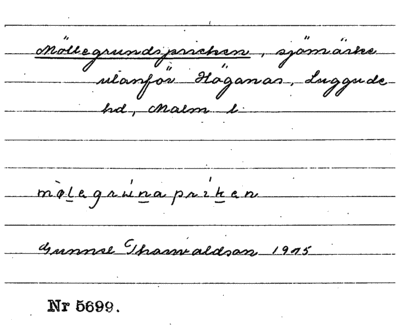 Möllegrundspricken, sjömärke
utanför Höganäs, Luggude
hd, Malm l.
mø̀legrúnapríken
Gunnel Thorvaldson 1975
Nr 5699.